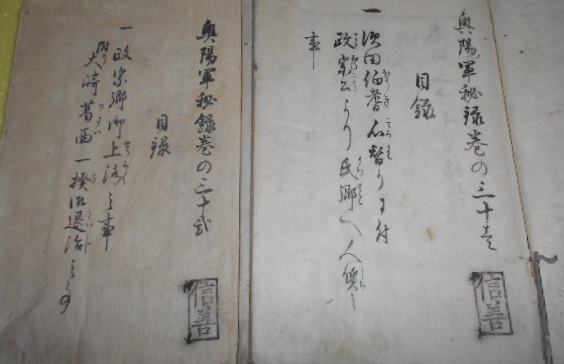 奥陽軍秘録巻の三十壱
目録
一 須田伯耆心替りニ付
政宗公より氏郷へ人質之
事
信善
奥陽軍秘録巻の三十弐
目録
一 政宗郷御上洛之事
附り大崎葛西一揆御退治之事
信善